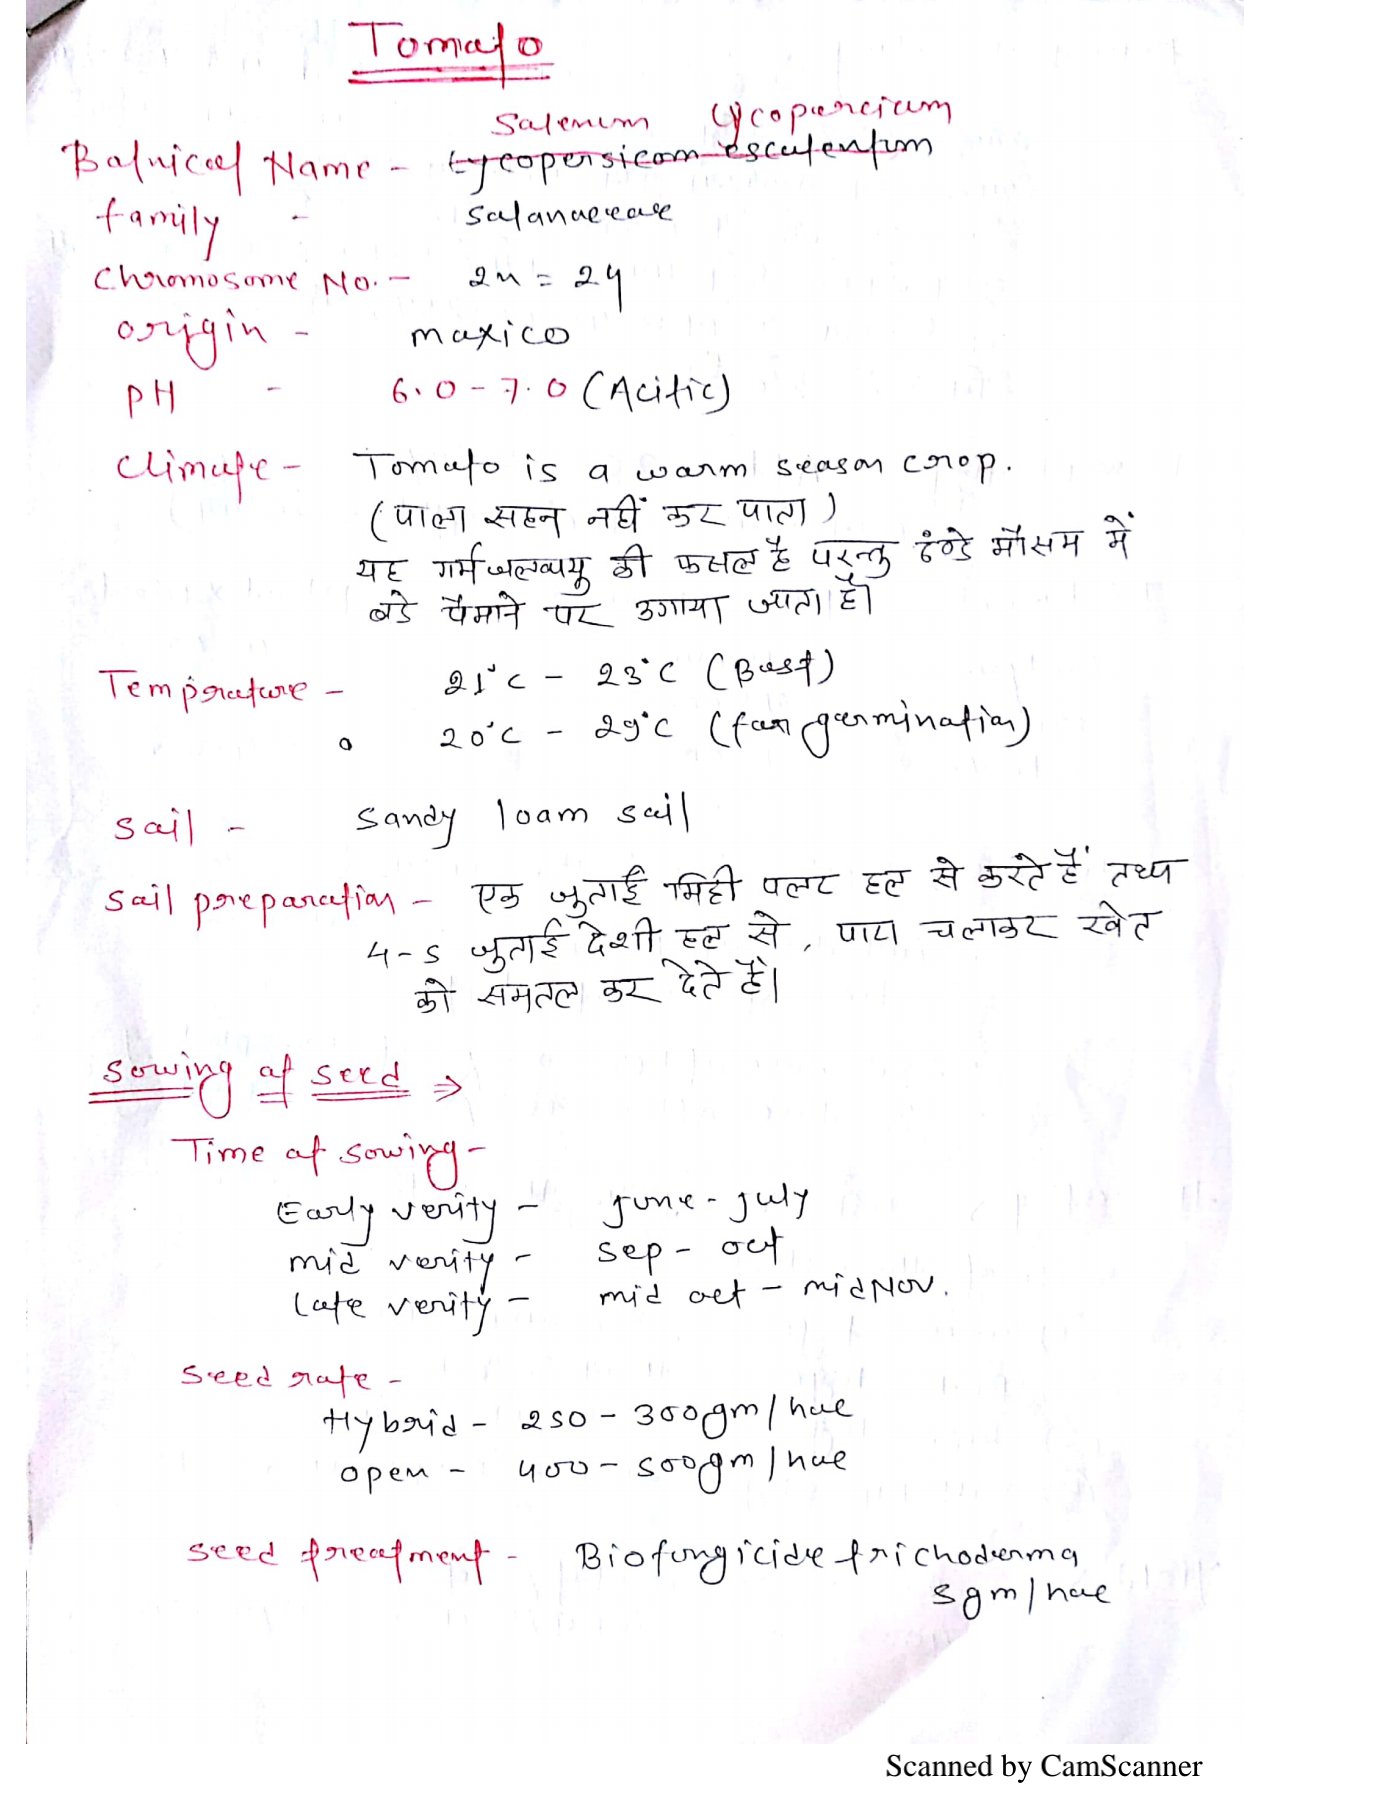 Tomato
Salenum Lycopercium
Batnical Name - Lycopersicom esculentum
family - Salanaceae
Chromosome No. - 2n = 24
Origin - maxico
PH - 6.0 - 7.0 (Acitic)
Climate - Tomato is a warm season crop.
(पाला सहन नहीं कर पाता)
यह गर्म जलवायु की फसल है परन्तु ठण्डे मौसम में
बडे पैमाने पर उगाया जाता है।
Temprature - 21°C - 23°C (Best)
20°C - 29°C (for germination)
Soil - Sandy loam soil
Soil preparation - एक जुताई मिट्टी पलट हल से करते हैं तथा
4-5 जुताई देशी हल से, पाटा चलाकर खेत
को समतल कर देते हैं।
Sowing of seed ⇒
Time of sowing -
Early verity - June - July
mid verity - Sep - oct
late verity - mid oct - mid Nov.
Seed rate -
Hybrid - 250 - 300gm/hac
open - 400 - 500gm/hac
Seed treatment - Biofungicide trichoderma
5gm/hac
Scanned by CamScanner